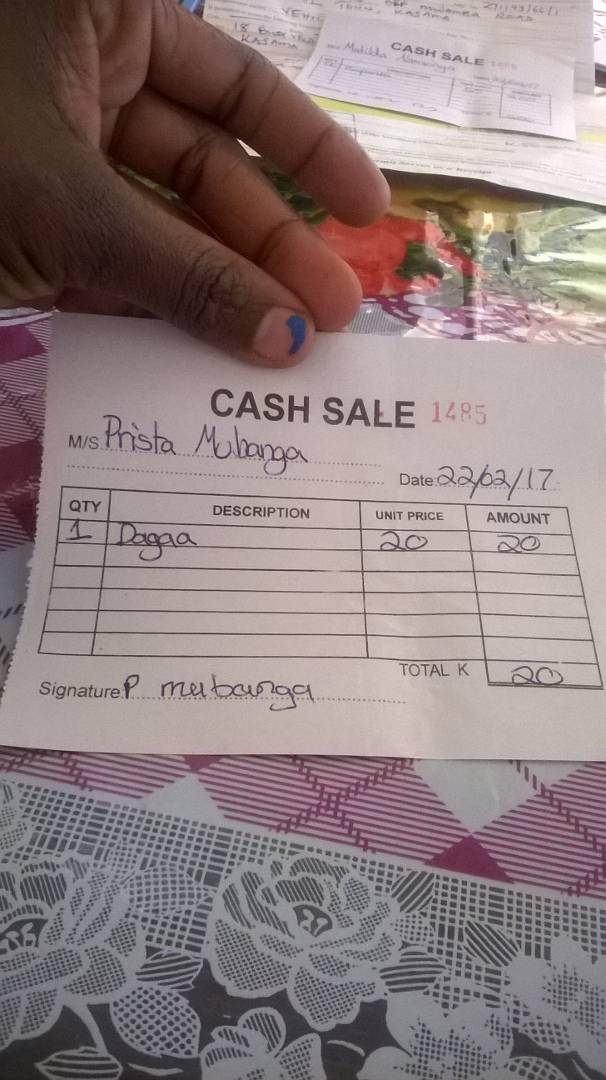 KASAMA
ROAD
KASAMA
CASH SALE
CASH SALE 1485
M/S Prista Mubanga
Date: 22/02/17
QTY DESCRIPTION UNIT PRICE AMOUNT
1 Dagaa 20 20
TOTAL K 20
Signature: P mubanga